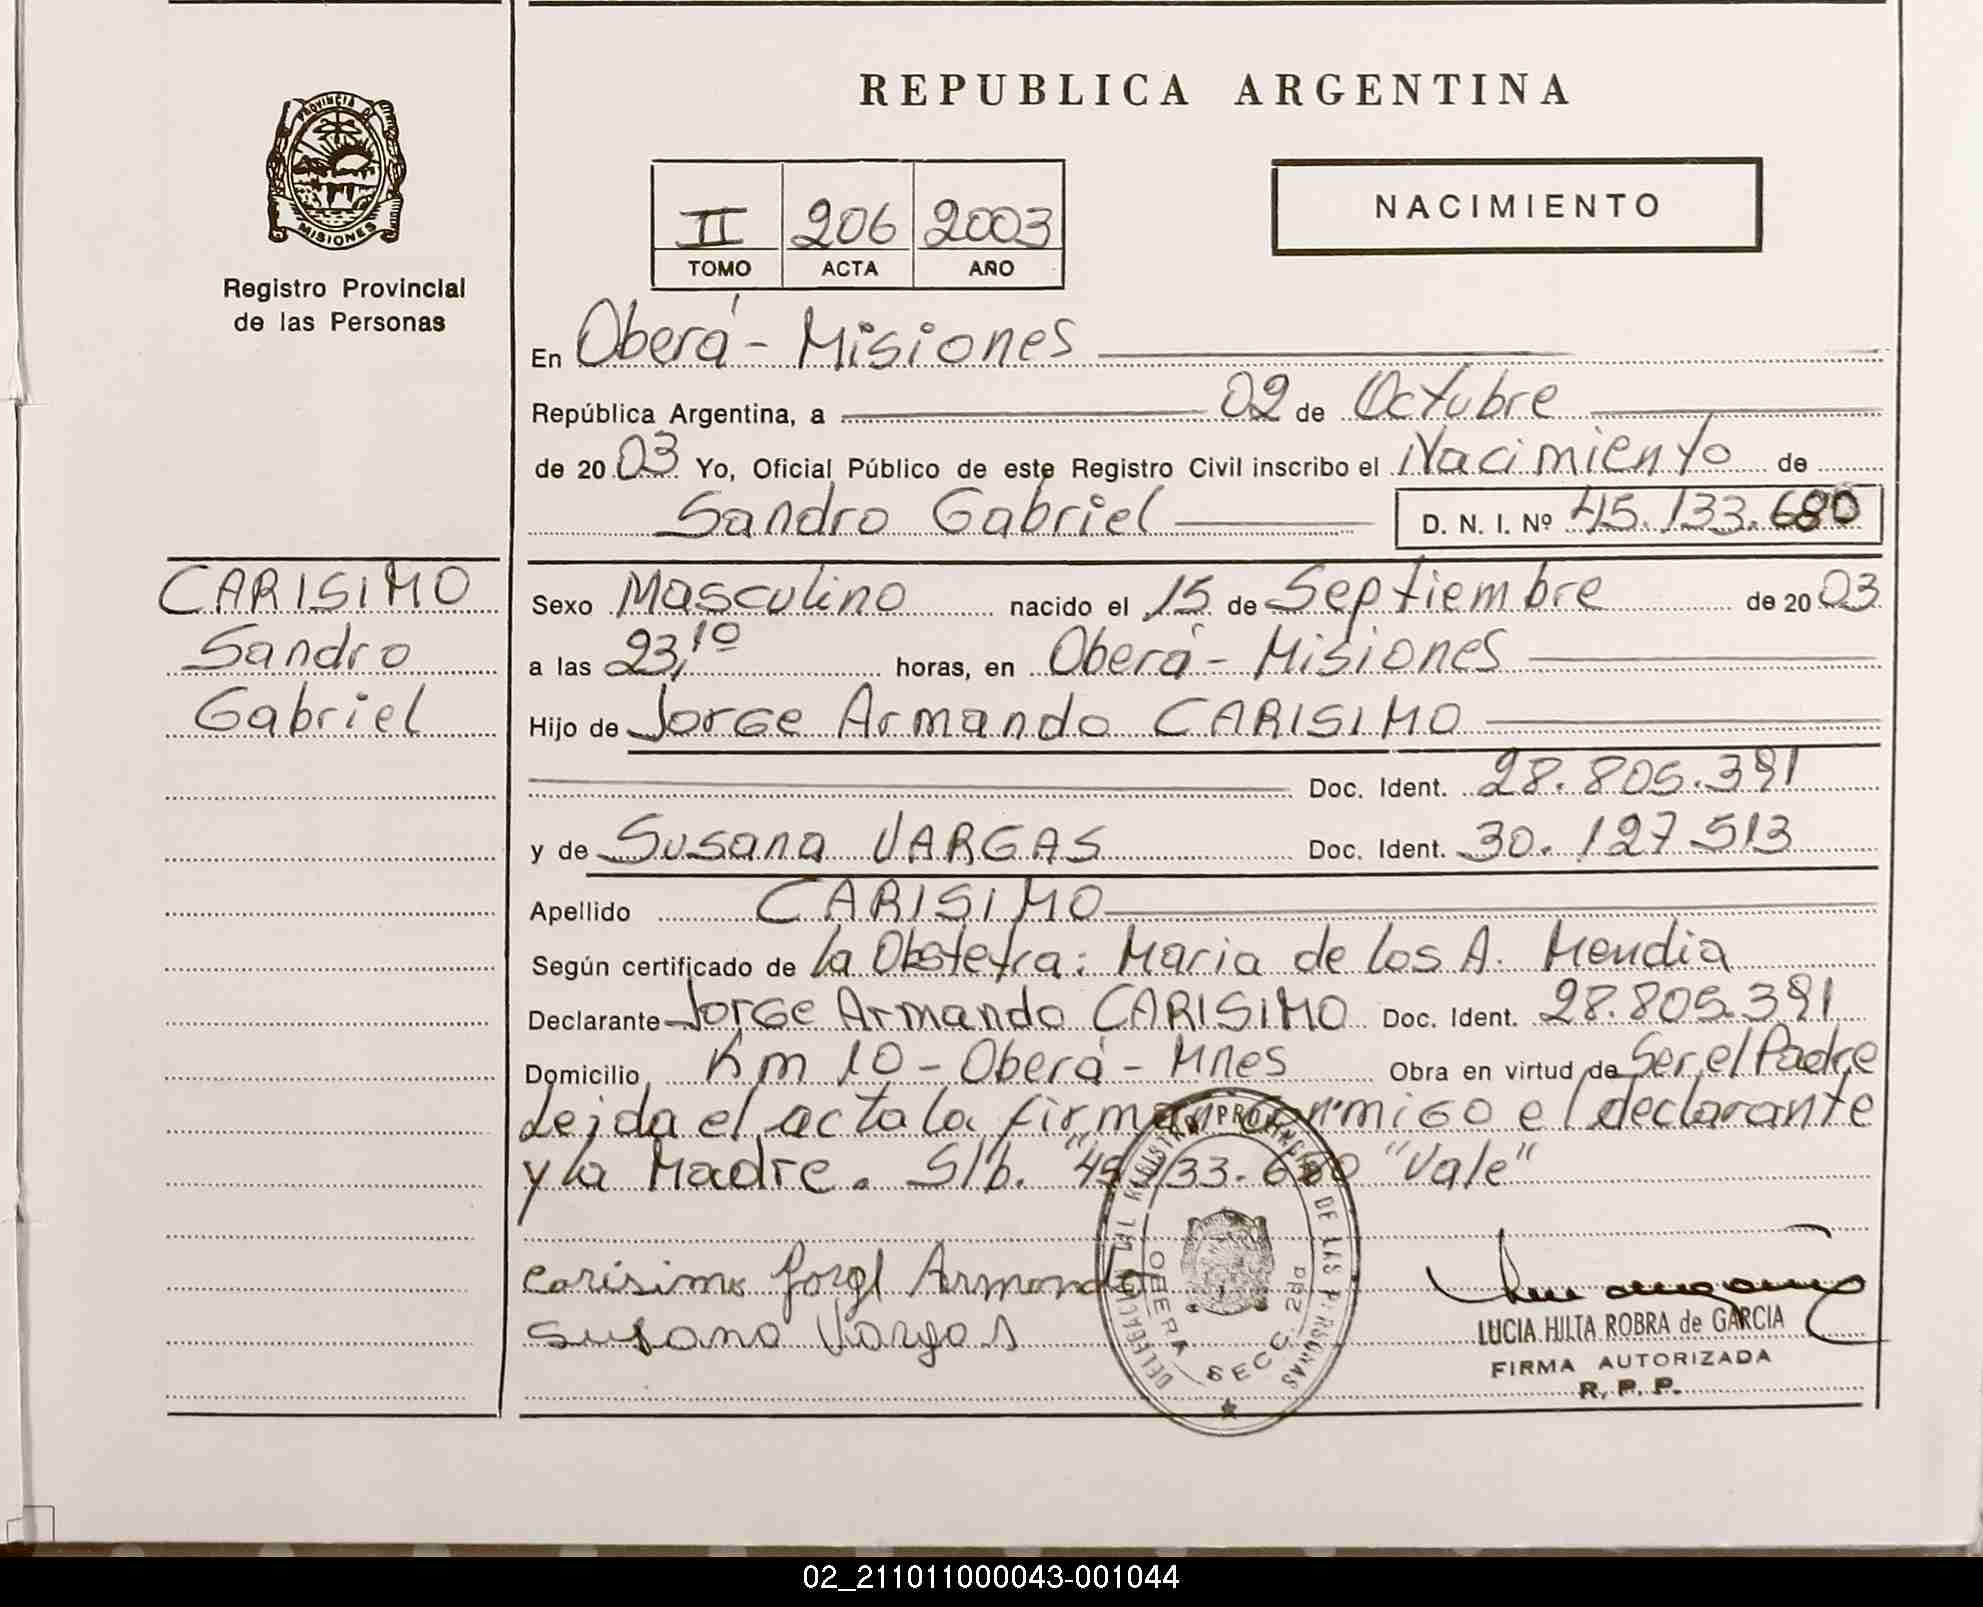 REPUBLICA ARGENTINA
PROVINCIA DE
MISIONES
Registro Provincial
de las Personas
II 206 2003
TOMO ACTA AÑO
NACIMIENTO
En Oberá - Misiones
República Argentina, a 02 de Octubre
de 2003 Yo, Oficial Público de este Registro Civil inscribo el Nacimiento de
Sandro Gabriel D. N. I. Nº 45.133.680
CARISIMO
Sandro
Gabriel
Sexo Masculino nacido el 15 de Septiembre de 2003
a las 23,10 horas, en Oberá - Misiones
Hijo de Jorge Armando CARISIMO
Doc. Ident. 28.805.391
y de Susana VARGAS Doc. Ident. 30.127.513
Apellido CARISIMO
Según certificado de la Obstetra: Maria de los A. Mendia
Declarante Jorge Armando CARISIMO Doc. Ident. 28.805.391
Domicilio Km 10 - Oberá - Mnes Obra en virtud de Ser el Padre
Leida el acta la firman conmigo el declarante
y la Madre. S/b. "45.133.680 "Vale"
Carisimo Jorge Armando
Susana Vargas
DELEGACION DEL REGISTRO PROVINCIAL DE LAS PERSONAS
OBERA SECC. 2da
LUCIA HILTA ROBRA de GARCIA
FIRMA AUTORIZADA
R. P. P.
02_211011000043-001044